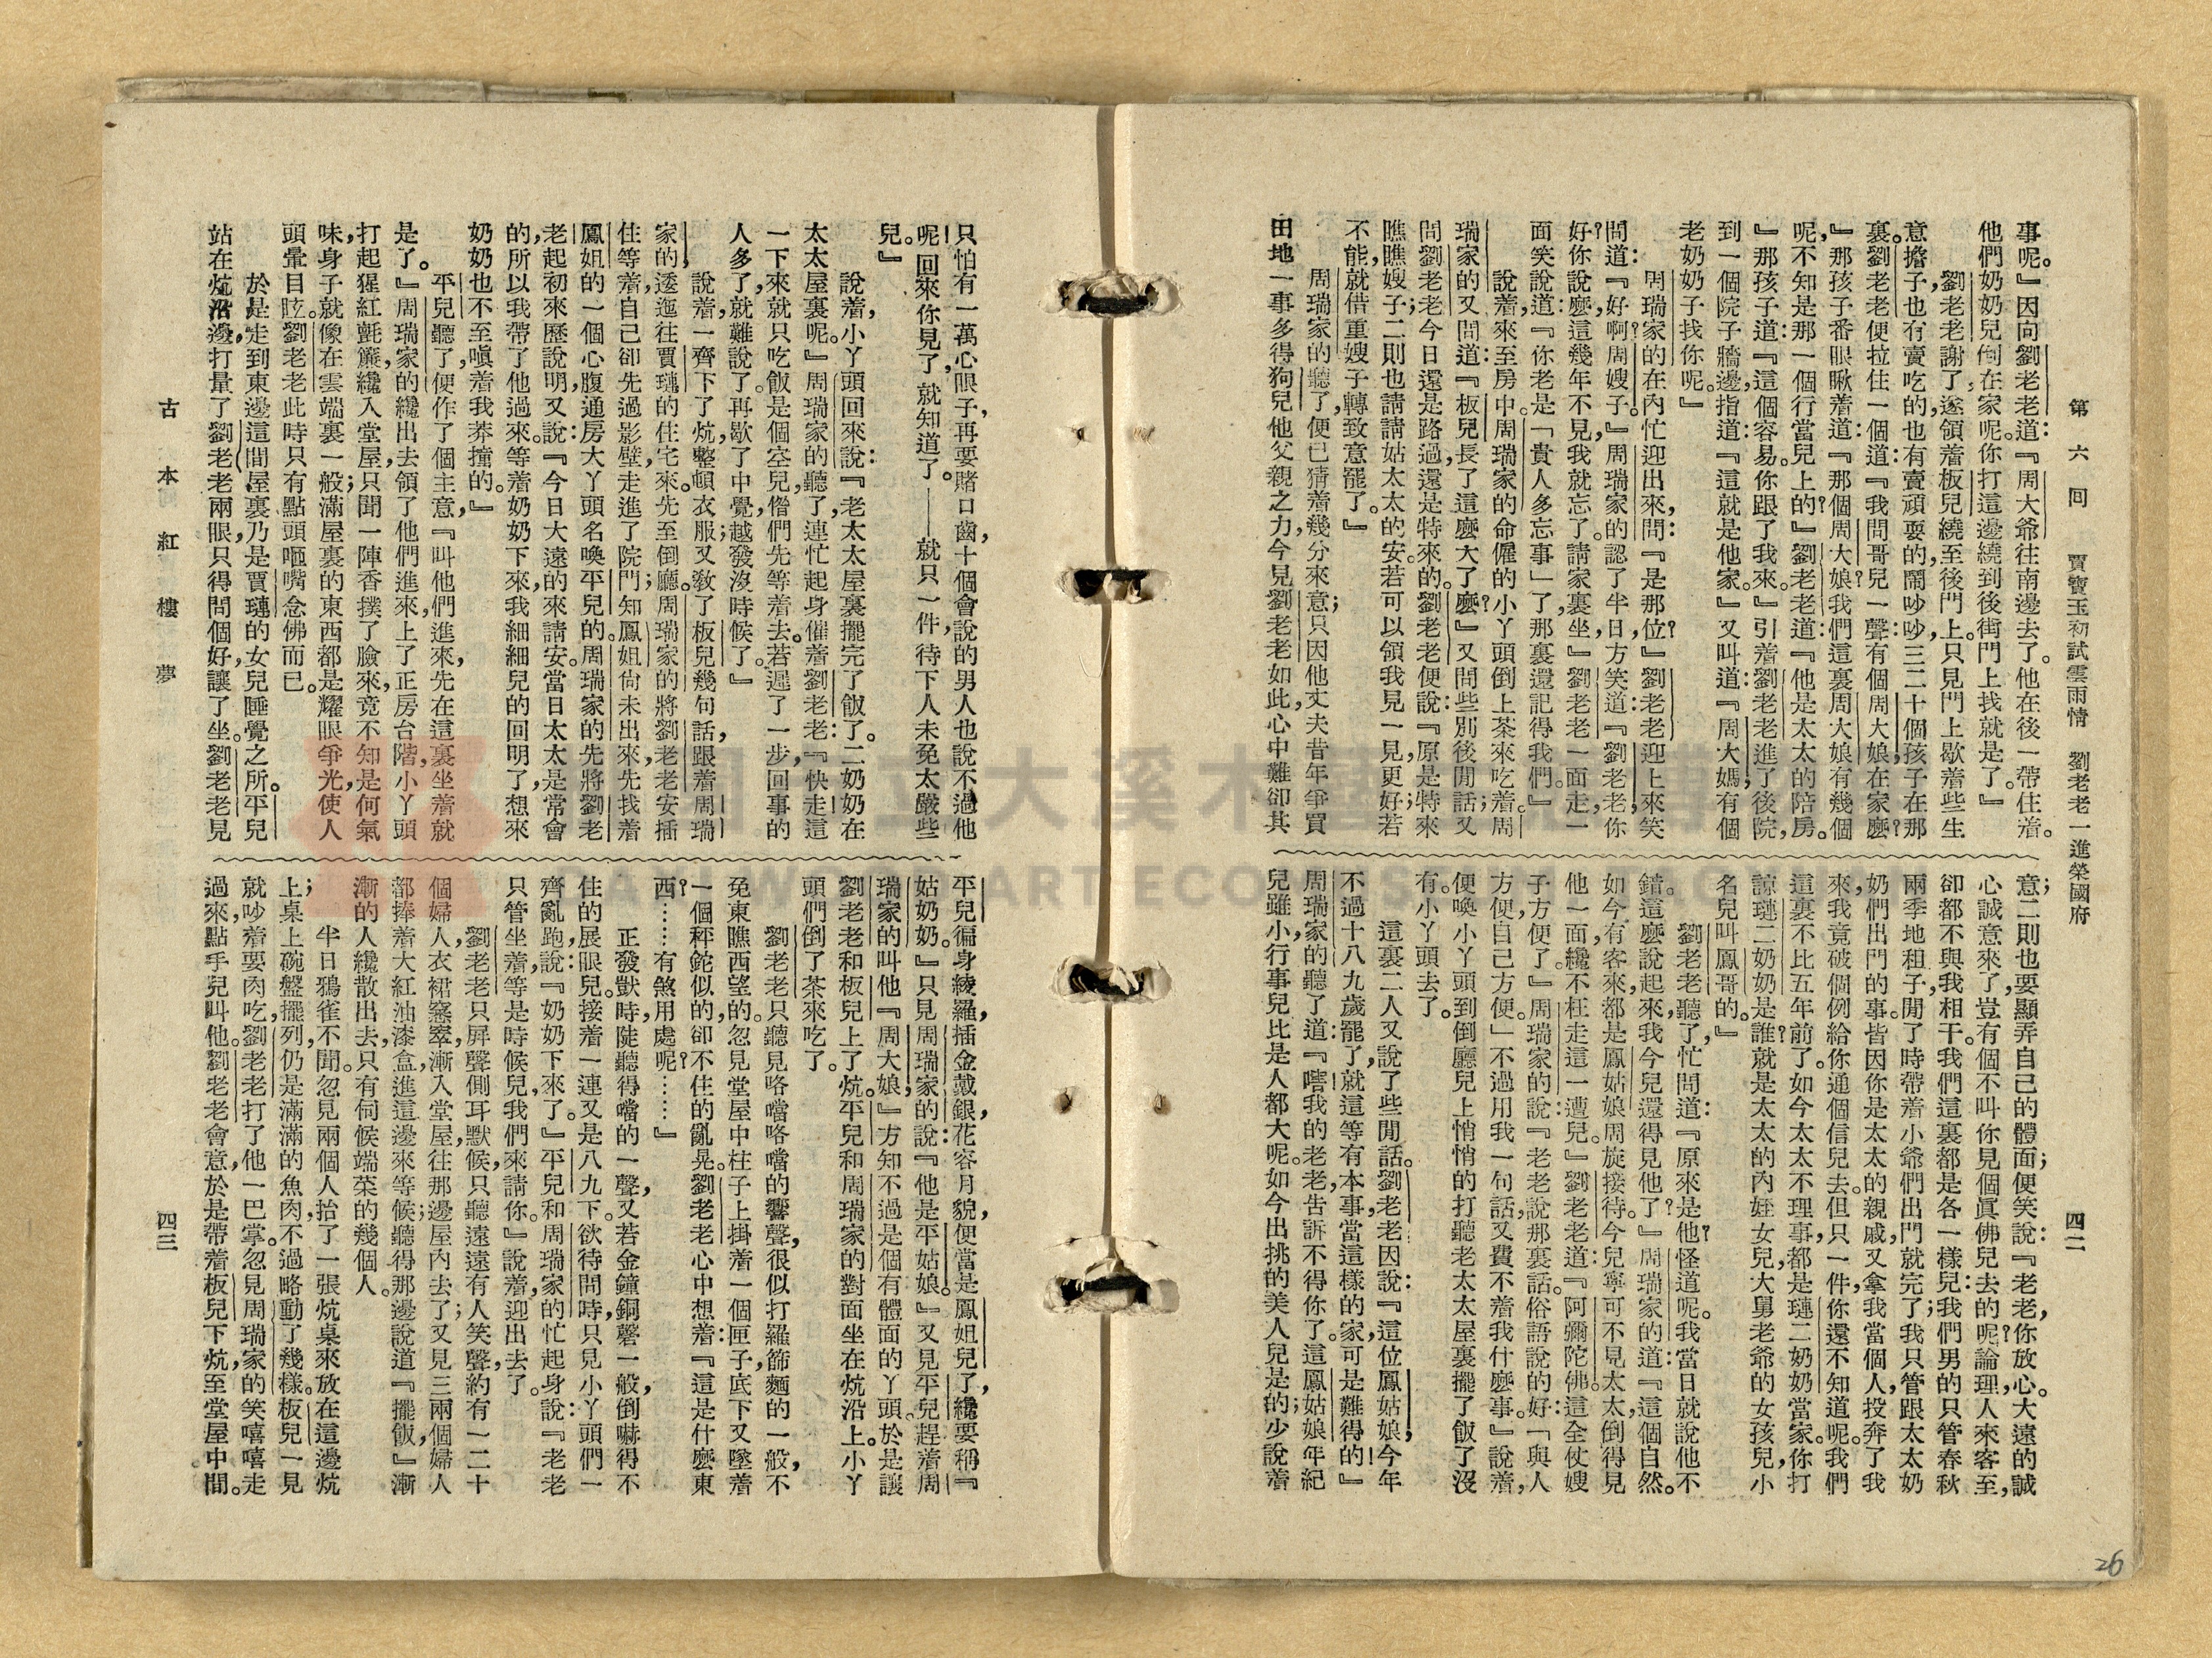 第六回　賈寶玉初試雲雨情　劉老老一進榮國府
四二
事呢。』因向劉老老道：『周大爺往南邊去了。他在後一帶住着。
他們奶奶兒倒在家呢。你打這邊繞到後街門上找就是了。』
劉老老謝了，遂領着板兒繞至後門上。只見門上歇着些生
意擔子，也有賣吃的，也有賣頑耍的，鬧吵吵三二十個孩子在那
裏。劉老老便拉住一個道：『我問哥兒一聲：有個周大娘在家麼？
』那孩子番眼瞅着道：『那個周大娘？我們這裏周大娘有幾個
呢，不知是那一個行當兒上的？』劉老老道：『他是太太的陪房。
』那孩子道：『這個容易。你跟了我來。』引着劉老老進了後院，
到一個院子牆邊，指道：『這就是他家。』又叫道：『周大媽，有個
老奶奶子找你呢。』
周瑞家的在內忙迎出來，問：『是那位？』劉老老迎上來笑
問道：『好啊？周嫂子。』周瑞家的認了半日，方笑道：『劉老老，你
好。你說麼，這幾年不見，我就忘了。請家裏坐，』劉老老一面走，一
面笑說道：『你老是「貴人多忘事」了，那裏還記得我們。』
說着，來至房中。周瑞家的命僱的小丫頭倒上茶來吃着。周
瑞家的又問道：『板兒長了這麼大了麼？』又問些別後閒話；又
問劉老老今日還是路過，還是特來的。劉老老便說：『原是特來
瞧瞧嫂子；二則也請請姑太太的安。若可以領我見一見，更好；若
不能，就借重嫂子轉致意罷了。』
周瑞家的聽了，便已猜着幾分來意；只因他丈夫昔年爭買
田地一事，多得狗兒他父親之力，今見劉老老如此，心中難卻其
意；二則也要顯弄自己的體面；便笑說：『老老，你放心。大遠的誠
心誠意來了，豈有個不叫你見個眞佛兒去的呢？論理，人來客至，
卻都不與我相干。我們這裏都是各一樣兒：我們男的只管春秋
兩季地租子，閒了時帶着小爺們出門就完了；我只管跟太太奶
奶們出門的事。皆因你是太太的親戚，又拿我當個人，投奔了我
來，我竟破個例給你通個信兒去。但只一件，你還不知道呢。我們
這裏不比五年前了。如今太太不理事，都是璉二奶奶當家。你打
諒璉二奶奶是誰？就是太太的內姪女兒，大舅老爺的女孩兒，小
名兒叫鳳哥的。』
劉老老聽了，忙問道：『原來是他？怪道呢。我當日就說他不
錯。這麼說起來，我今兒還得見他了？』周瑞家的道：『這個自然。
如今有客來，都是鳳姑娘周旋接待。今兒寧可不見太太，倒得見
他一面，纔不枉走這一遭兒。』劉老老道：『阿彌陀佛。這全仗嫂
子方便了。』周瑞家的說：『老老說那裏話。俗語說的好：「與人
方便，自己方便。」不過用我一句話，又費不着我什麼事。』說着，
便喚小丫頭到倒廳兒上悄悄的打聽老太太屋裏擺了飯了沒
有。小丫頭去了。
這裏二人又說了些閒話。劉老老因說：『這位鳳姑娘，今年
不過十八九歲罷了，就這等有本事，當這樣的家，可是難得的！』
周瑞家的聽了道：『嗐！我的老老，告訴不得你了。這鳳姑娘年紀
兒雖小，行事兒比是人都大呢。如今出挑的美人兒是的；少說着
只怕有一萬心眼子，再要賭口齒，十個會說的男人也說不過他
呢！回來你見了，就知道了。——就只一件，待下人未免太嚴些
兒。』
說着，小丫頭回來說：『老太太屋裏擺完了飯了。二奶奶在
太太屋裏呢。』周瑞家的聽了，連忙起身，催着劉老老：『快走！這
一下來就只吃飯是個空兒，偺們先等着去。若遲了一步，回事的
人多了，就難說了。再歇了中覺，越發沒時候了。』
說着，一齊下了炕，整頓衣服；又敎了板兒幾句話，跟着周瑞
家的，逶迤往賈璉的住宅來。先至倒廳，周瑞家的將劉老老安插
住等着，自己卻先過影壁，走進了院門；知鳳姐尙未出來，先找着
鳳姐的一個心腹通房大丫頭名喚平兒的。周瑞家的先將劉老
老起初來歷說明，又說：『今日大遠的來請安。當日太太是常會
的，所以我帶了他過來。等着奶奶下來，我細細兒的回明了，想來
奶奶也不至嗔着我莽撞的。』
平兒聽了，便作了個主意，『叫他們進來，先在這裏坐着就
是了。』周瑞家的纔出去領了他們進來，上了正房台階，小丫頭
打起猩紅氈簾，纔入堂屋，只聞一陣香撲了臉來，竟不知是何氣
味，身子就像在雲端裏一般；滿屋裏的東西都是耀眼爭光，使人
頭暈目眩。劉老老此時只有點頭咂嘴念佛而已。
於是走到東邊這間屋裏，乃是賈璉的女兒睡覺之所。平兒
站在炕沿邊，打量了劉老老兩眼，只得問個好，讓了坐。劉老老見
平兒徧身綾羅，插金戴銀，花容月貌，便當是鳳姐兒了，纔要稱『
姑奶奶。』只見周瑞家的說：『他是平姑娘。』又見平兒趕着周
瑞家的叫他『周大娘，』方知不過是個有體面的丫頭。於是讓
劉老老和板兒上了炕。平兒和周瑞家的對面坐在炕沿上。小丫
頭們倒了茶來吃了。
劉老老只聽見咯噹咯噹的響聲，很似打羅篩麵的一般，不
免東瞧西望的。忽見堂屋中柱子上掛着一個匣子，底下又墜着
一個秤鉈似的，卻不住的亂晃。劉老老心中想着：『這是什麼東
西？……有煞用處呢？……』
正發獃時，陡聽得噹的一聲，又若金鐘銅磬一般，倒嚇得不
住的展眼兒。接着一連又是八九下。欲待問時，只見小丫頭們一
齊亂跑，說：『奶奶下來了。』平兒和周瑞家的忙起身說：『老老
只管坐着，等是時候兒，我們來請你。』說着，迎出去了。
劉老老只屏聲側耳默候，只聽遠遠有人笑聲，約有一二十
個婦人，衣裙窸窣，漸入堂屋，往那邊屋內去了；又見三兩個婦人
都捧着大紅油漆盒，進這邊來等候；聽得那邊說道『擺飯，』漸
漸的人纔散出去，只有伺候端菜的幾個人。
半日鴉雀不聞。忽見兩個人抬了一張炕桌來放在這邊炕
上；桌上碗盤擺列，仍是滿滿的魚肉，不過略動了幾樣。板兒一見
就吵着要肉吃，劉老老打了他一巴掌。忽見周瑞家的笑嘻嘻走
過來，點手兒叫他。劉老老會意，於是帶着板兒下炕，至堂屋中間。
古本紅樓夢
四三
26
大溪木藝